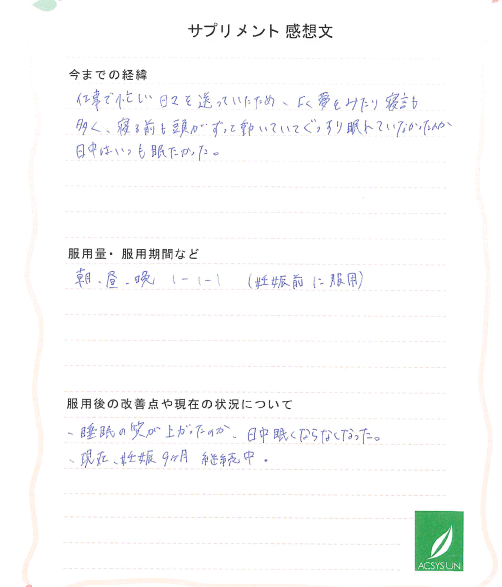 サプリメント 感想文
今までの経緯
仕事で忙しい日々を送っていたため、よく夢をみたり寝言も
多く、寝る前も頭がずっと動いていてぐっすり眠れていなかったのか
日中はいつも眠たかった。
服用量・服用期間など
朝、昼、晩 1-1-1 (妊娠前に服用)
服用後の改善点や現在の状況について
、睡眠の質が上がったのか、日中眠くならなくなった。
、現在、妊娠9ヶ月 継続中。
ACSYSUN